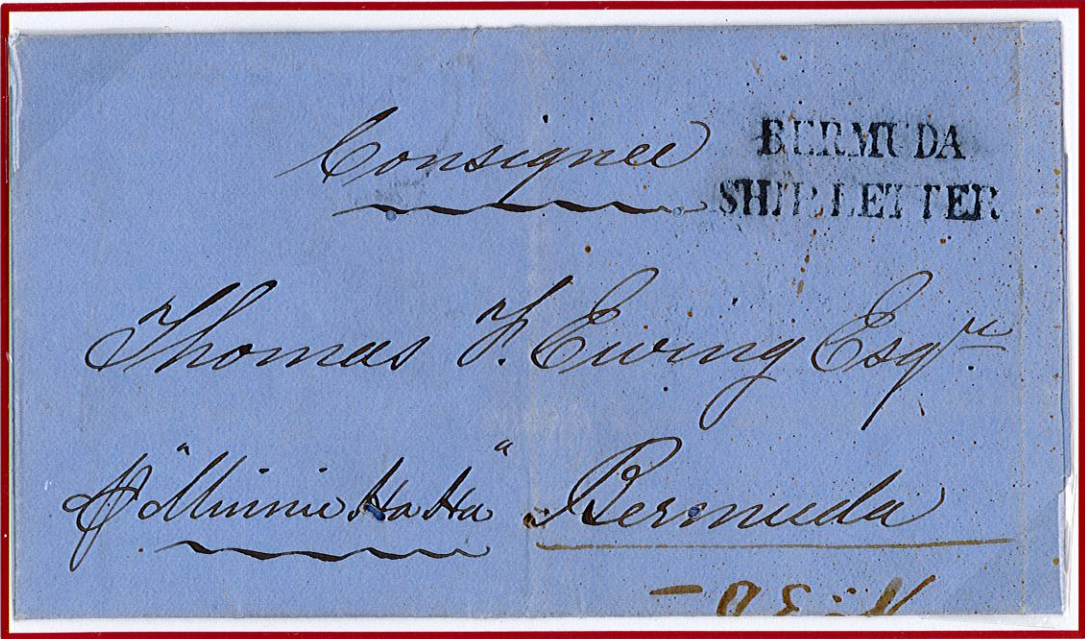 Consignee
BERMUDA
SHIP LETTER
Thomas F. Ewing Esqre.
p "Minnie Ha Ha" Bermuda